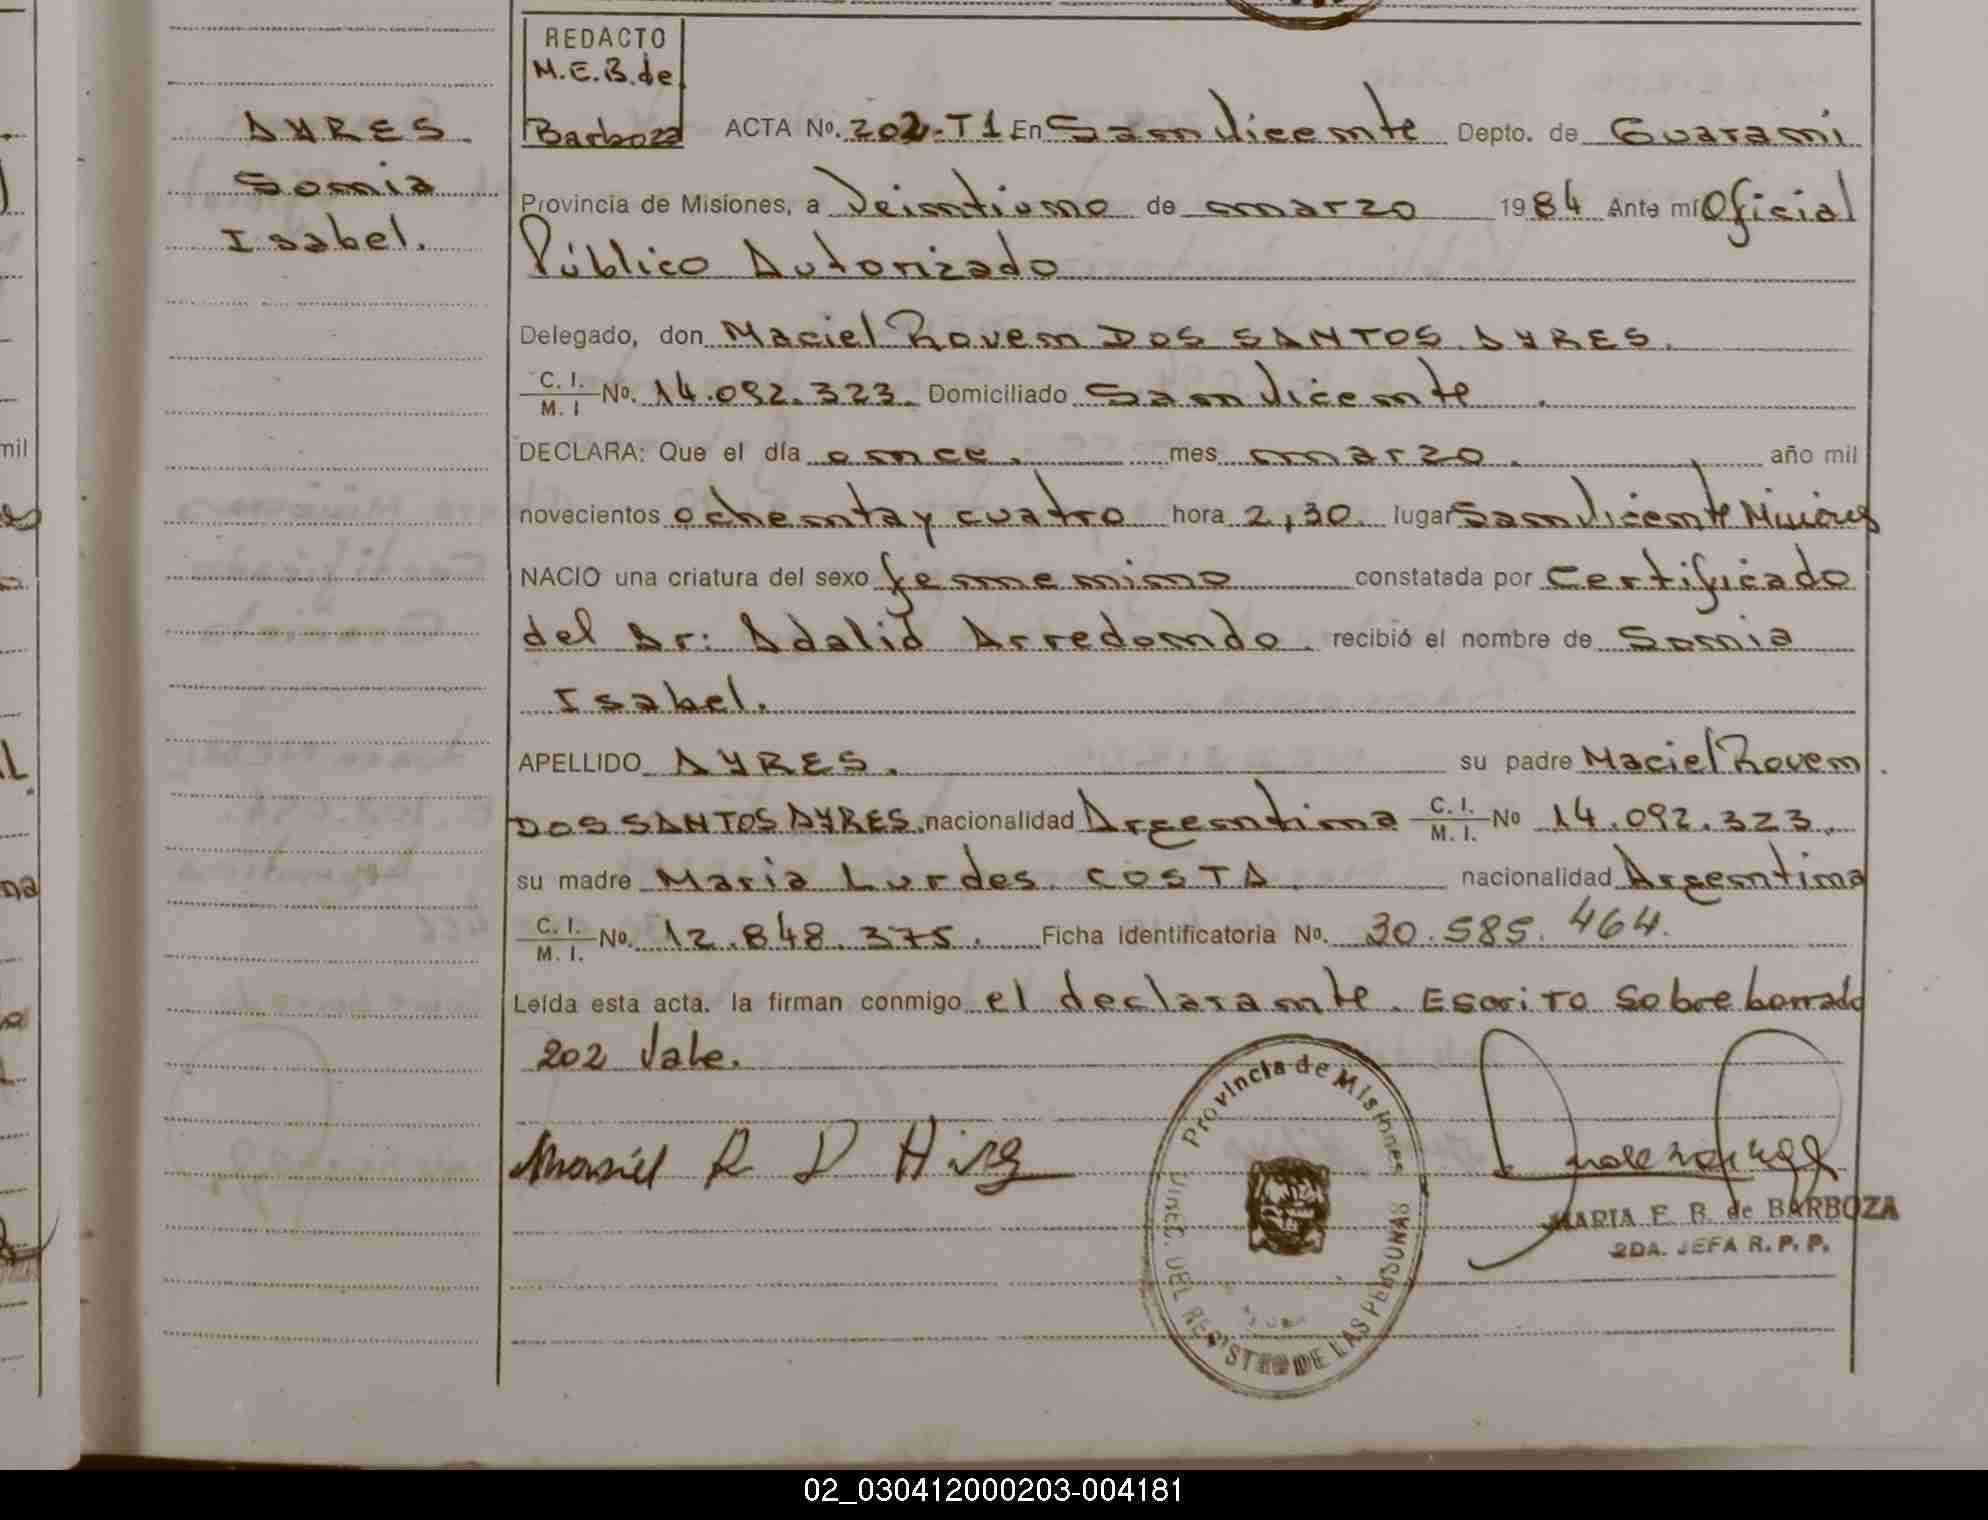 REDACTO
M.E.B.de
Barboza
AYRES
Sonia
Isabel.
ACTA No. 202-T1 En San Vicente Depto. de Guaraní
Provincia de Misiones, a Veintiuno de marzo 1984 Ante mí Oficial
Público Autorizado
Delegado, don Maciel Rovem DOS SANTOS AYRES.
C. I. / M. I No. 14.092.323. Domiciliado San Vicente.
DECLARA: Que el día once. mes marzo. año mil
novecientos ochenta y cuatro hora 2,30. lugar San Vicente Misiones
NACIO una criatura del sexo femenino constatada por Certificado
del Dr: Adalid Arredondo. recibió el nombre de Sonia
Isabel.
APELLIDO AYRES. su padre Maciel Rovem
DOS SANTOS AYRES. nacionalidad Argentina C. I. / M. I. No 14.092.323.
su madre Maria Lurdes COSTA. nacionalidad Argentina
C. I. / M. I. No. 12.848.375. Ficha identificatoria No. 30.585.464.
Leída esta acta. la firman conmigo el declarante. Escrito sobre borrado
202 Vale.
Provincia de Misiones
DIREC. DEL REGISTRO DE LAS PERSONAS
MARIA E. B. de BARBOZA
2DA. JEFA R. P. P.
02_030412000203-004181